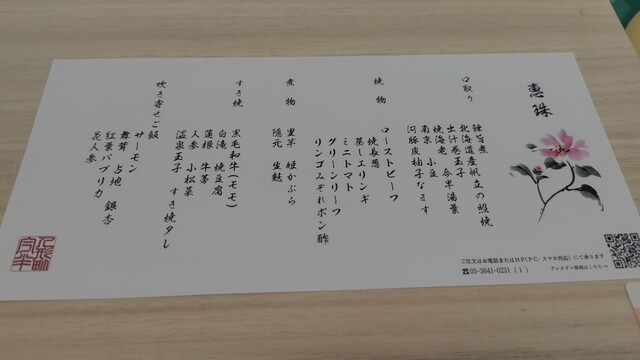 惠珠
口取り
鰊旨煮
北海道産帆立の照焼
出汁巻玉子
焼海老 今半湯葉
南京 小豆
河豚皮柚子なます
焼物
ローストビーフ
焼長葱
蒸しエリンギ
ミニトマト
グリーンリーフ
リンゴみぞれポン酢
煮物
里芋 姫かぶら
隠元 生麩
すき焼
黒毛和牛(モモ)
白滝 焼豆腐
蓮根 牛蒡
人参 小松菜
温泉玉子 すき焼タレ
吹き寄せご飯
サーモン
舞茸 占地 銀杏
紅葉パプリカ
花人参
ご注文はお電話またはHP(PC・スマホ対応)にて承ります
☎03-3641-0231(1)
アレルゲン情報はこちら→
人形町今半